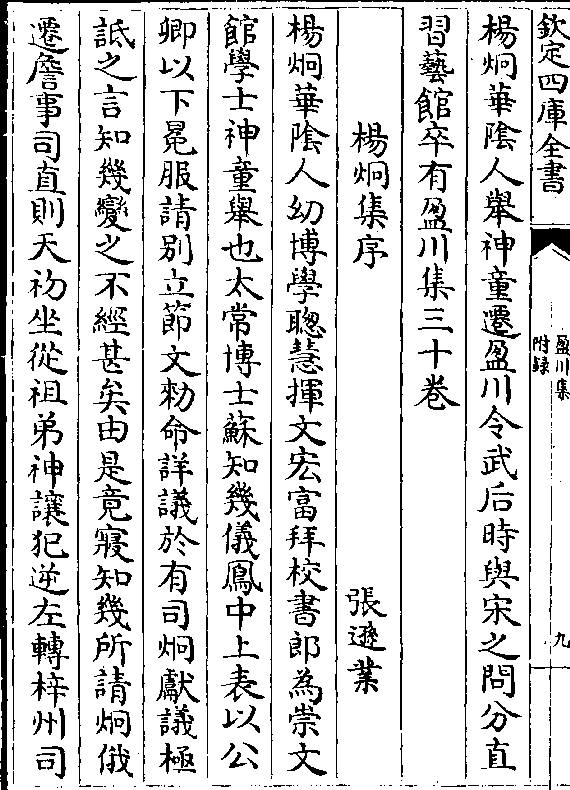 欽定四庫全書
盈川集
附録
九
楊炯華陰人舉神童遷盈川令武后時與宋之問分直
習藝館卒有盈川集三十卷
楊炯集序
張遜業
楊炯華陰人幼博學聰慧揮文宏富拜校書郎為崇文
館學士神童舉也太常博士蘇知幾儀鳳中上表以公
卿以下冕服請别立節文勅命詳議於有司炯獻議極
詆之言知幾變之不經甚矣由是竟寢知幾所請炯俄
遷詹事司直則天初坐從祖弟神讓犯逆左轉梓州司